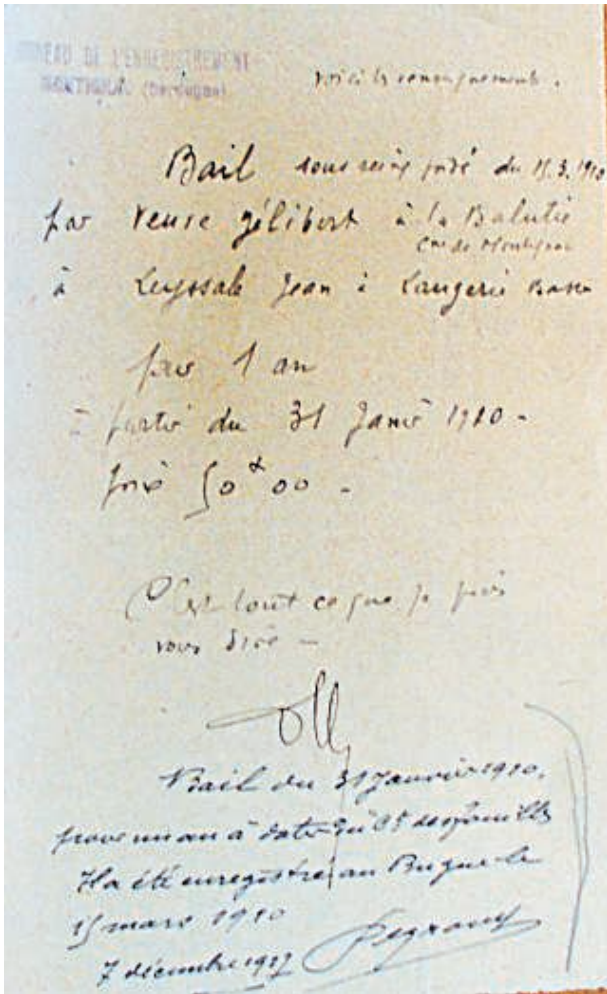 BUREAU DE L'ENREGISTREMENT
MONTIGNAC (Dordogne)
voici les renseignements.
Bail sous seing privé du 15.3.1910
par Veuve Gélibert à la Balutie
Cne de Montignac
à Leyssale Jean à Laugerie Basse
pour 1 an
à partir du 31 Janvr 1910 -
prix 50 00 -
C'est tout ce que je puis
vous dire -
Bail du 31 Janvier 1910.
pour un an à dater du des fouilles
Il a été enregistré au Bugue le
15 mars 1910
7 décembre 1917 Peyrony